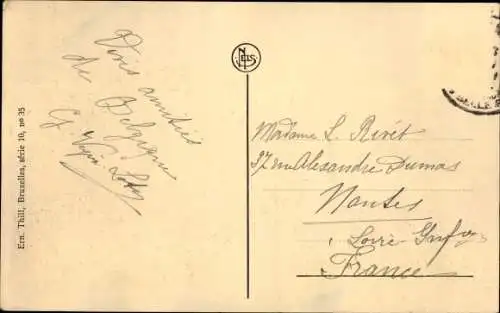 Ern. Thill, Bruxelles, série 10, no 35
amitiés
de Belgique
G.
NELS
Madame L. Rivet
37 rue Alexandre Dumas
Nantes
Loire Infre
France